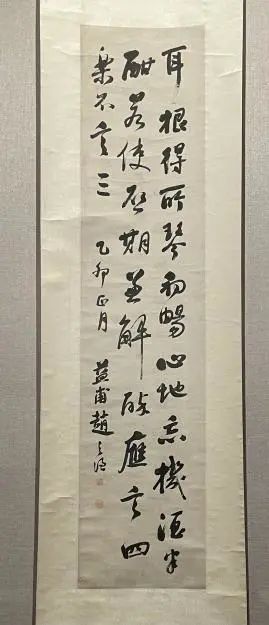 耳根得所琴初暢心地忘機酒半
酣若使启期兼解醉應言四
樂不言三 乙卯正月 益甫趙之謙